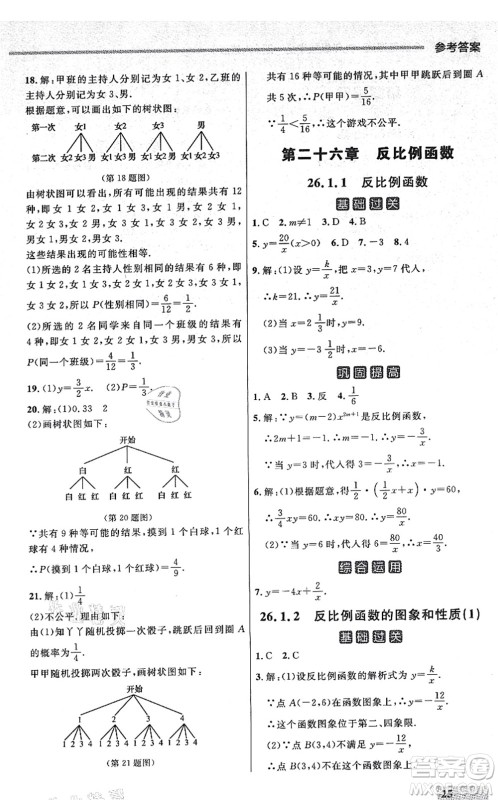 参考答案
18.解:甲班的主持人分别记为女1、女2,乙班的主持人分别记为女3、男.
根据题意,可以画出如下的树状图:
第一次 女1 女2 女3 男
第二次 女2 女3 男 女1 女3 男 女1 女2 男 女1 女2 女3
(第18题图)
由树状图可以看出,所有可能的结果共有12
种,女1女2,女1女3,女1男,女2女1,女2
女3,女2男,女3女1,女3女2,女3男,男女1,
男女2,男女3.
这些结果出现的可能性相等.
(1)所选的2名主持人性别相同的结果有6
种,即女1女2,女1女3,女2女1,女2女3,女3
女1,女3女2,所以P(性别相同)=6/12=1/2.
(2)所选的2名同学来自同一个班级的结果
有4种,即女1女2,女2女1,女3男,男女3,所
以P(同一个班级)=4/12=1/3.
19.(1)1/4 (2)P=1/3
20.解:(1)0.33 2
(2)画树状图如下:
开始
白 红 红
白 红 红 白 红 红 白 红 红
(第20题图)
∵共有9种等可能的结果,摸到1个白球、1个
红球有4种情况,
∴P(摸到1个白球,1个红球)=4/9.
21.解:(1)1/4
(2)不公平.理由如下:
由(1)知丫丫随机投掷一次骰子,跳跃后回到圈A
的概率为1/4,
甲甲随机投掷两次骰子,画树状图如下:
开始
1 2 3 4
1 2 3 4 1 2 3 4 1 2 3 4 1 2 3 4
(第21题图)
共有16种等可能的情况,其中甲甲跳跃后到圈A
共5次,∴P(甲甲)=5/16.
∵1/4<5/16,∴该游戏不公平.
第二十六章 反比例函数
26.1.1 反比例函数
基础过关
1.C 2.m≠1 3.D 4.B
5.y=20/x(x>0) 6.D 7.-3 8.4
9.解:(1)设y=k/x,把x=3,y=7代入,
∴k=21.∴y=21/x.
(2)当x=9时,y=7/3.
巩固提高
1.A 2.B 3.反 -3/2 4.B
5.解:(1)∵y=(m-1)x^(2m+1)是反比例函数,
∴2m+1=-1,∴m=-1,
(2)当y=3/5时,代入得3/5=-2/x,∴x=-10/3.
6.解:(1)根据题意,得1/2·(1/2x+x)·y=60,
∴3/4xy=60,∴y=80/x.
综合运用
7.解:(1)y=-4x+1/x
26.1.2 反比例函数的图象和性质(1)
基础过关
1.C 2.C
3.解:(1)设反比例函数的解析式为y=k/x,
∵点A(-2,6)在函数图象上,∴k=-12,
∴这个函数图象位于第二、四象限.
(2)点B(3,4)不在这个函数图象上.
∵点B(3,4)不满足y=-12/x,